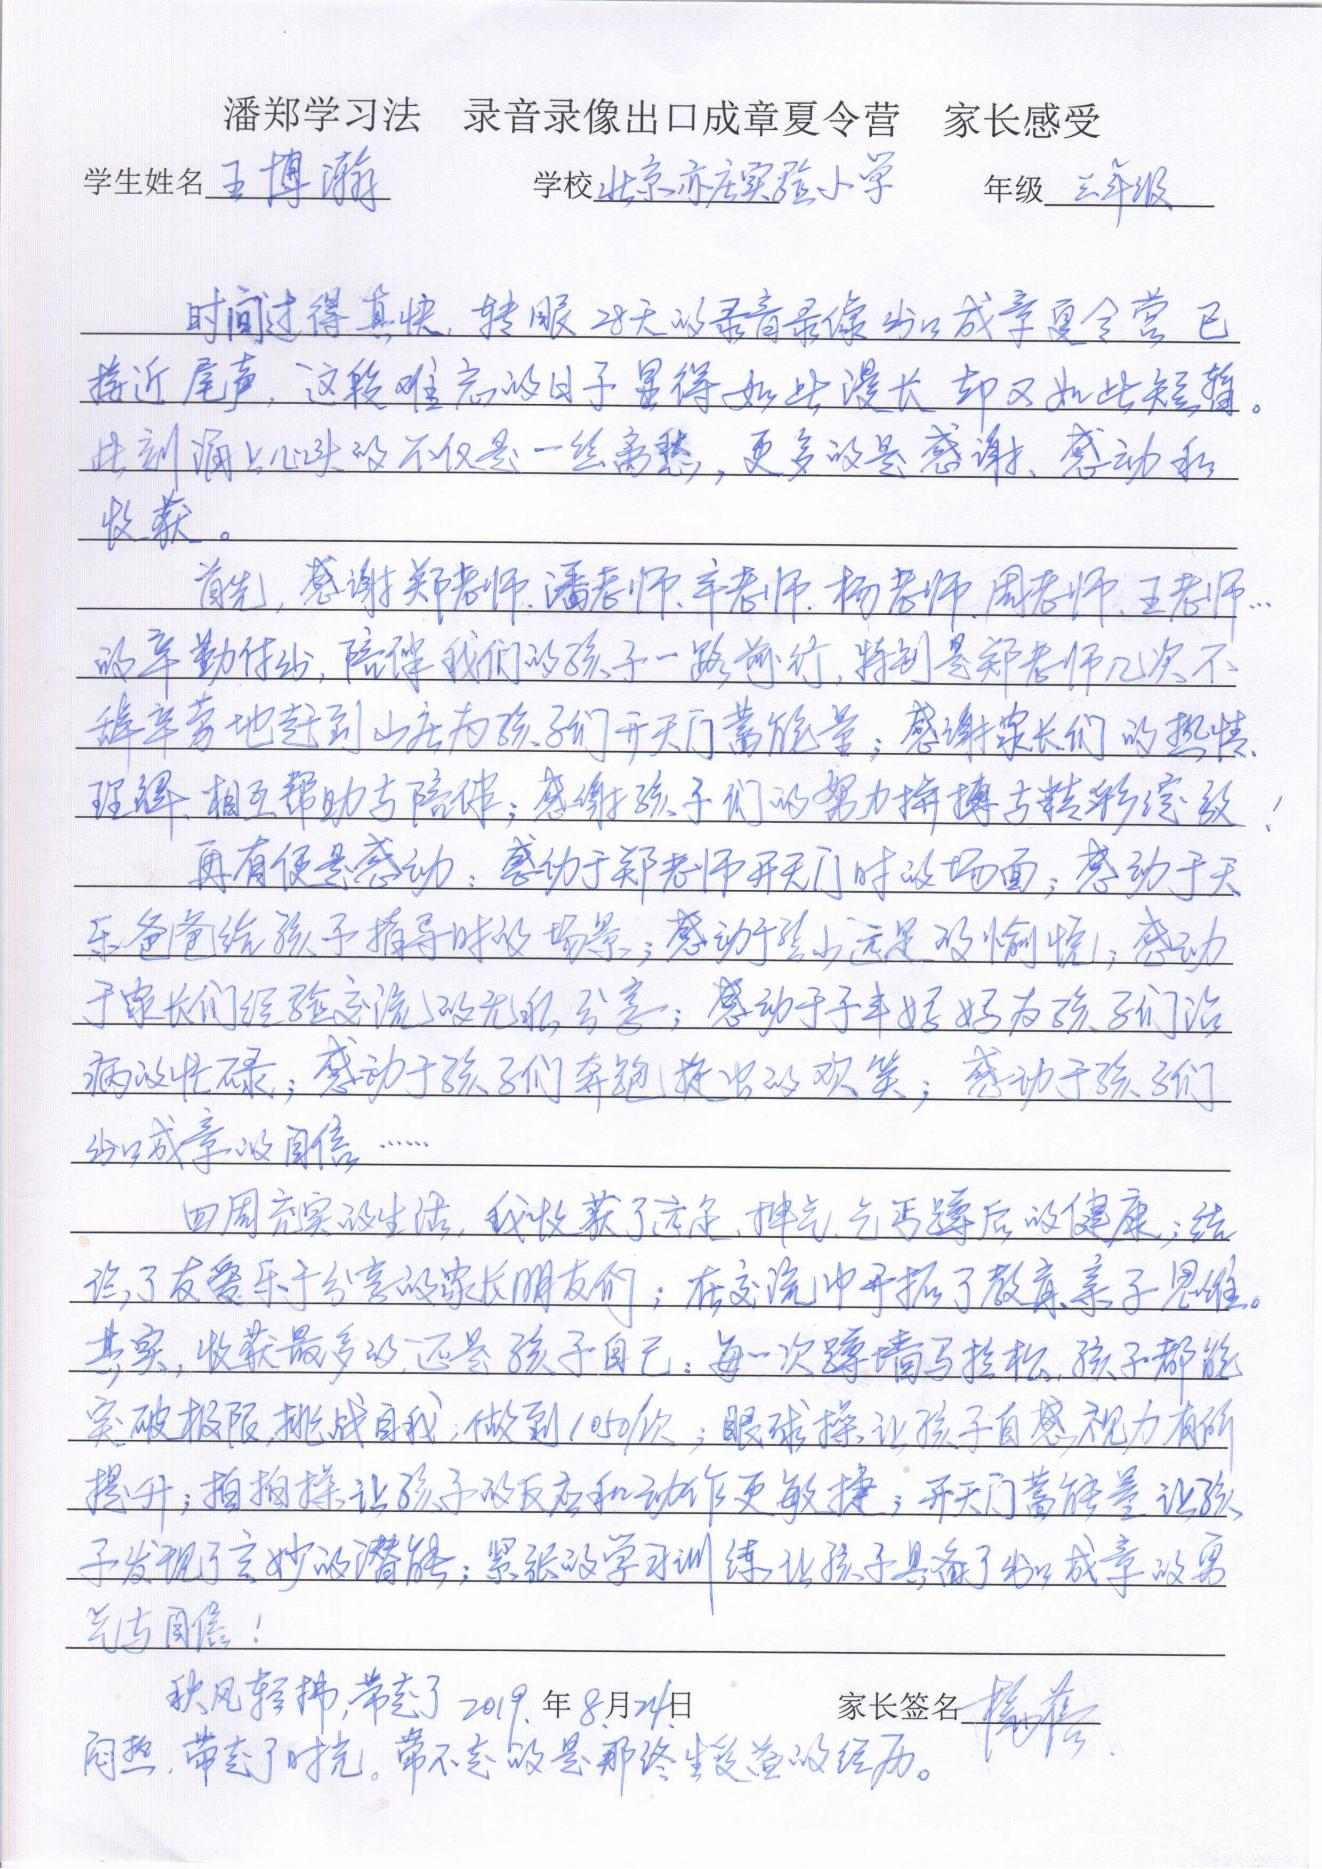 潘郑学习法 录音录像出口成章夏令营 家长感受
学生姓名 王博瀚 学校 北京亦庄实验小学 年级 三年级
时间过得真快，转眼28天的录音录像出口成章夏令营已
接近尾声，这段难忘的日子显得如此漫长却又如此短暂。
此刻涌上心头的不仅是一丝离愁，更多的是感谢、感动和
收获。
首先，感谢郑老师、潘老师、辛老师、杨老师、周老师、王老师…
的辛勤付出，陪伴我们的孩子一路前行，特别是郑老师几次不
辞辛劳地赶到山庄为孩子们开天门蓄能量；感谢家长们的热情、
理解、相互帮助与陪伴；感谢孩子们的努力拼搏与精彩绽放！
再有便是感动：感动于郑老师开天门时的场面；感动于天
乐爸爸给孩子指导时的场景；感动于登山远足的愉悦；感动
于家长们经验交流的无私分享；感动于子丰妈妈为孩子们治
病的忙碌；感动于孩子们奔跑捉虫的欢笑；感动于孩子们
出口成章的自信……
四周充实的生活，我收获了远足、抻气、乞丐蹲后的健康；结
识了友爱乐于分享的家长朋友们；在交流中开拓了教育亲子思维。
其实，收获最多的还是孩子自己：每一次蹲墙马拉松，孩子都能
突破极限，挑战自我，做到1050次；眼球操让孩子自感视力有所
提升；拍拍操让孩子的反应和动作更敏捷；开天门蓄能量让孩
子发现了玄妙的潜能；紧张的学习训练让孩子具备了出口成章的勇
气与自信！
秋风轻拂，带走了 2019 年 8 月 24 日 家长签名
闷热，带走了时光。带不走的是那终生受益的经历。